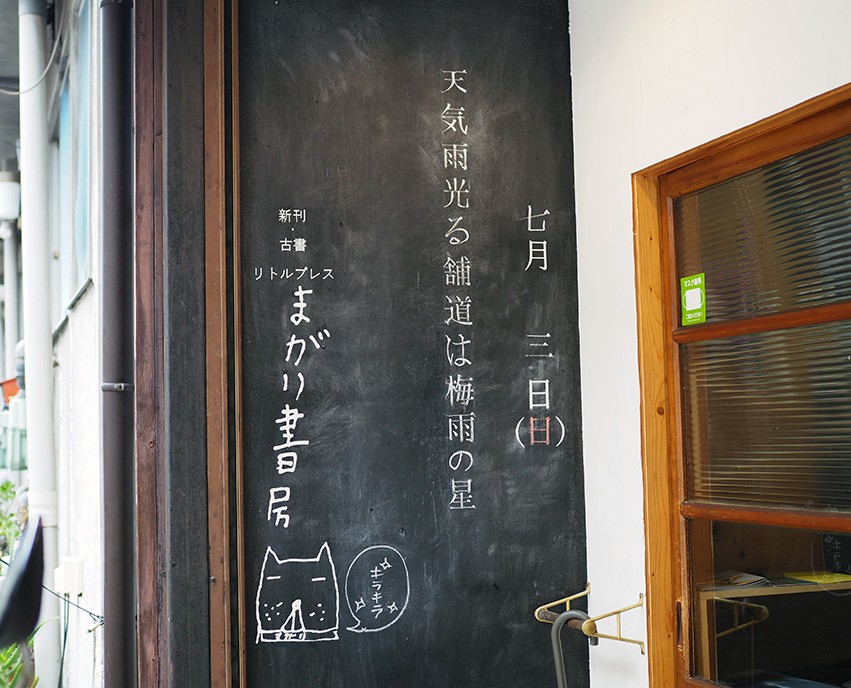 七月 三日(日)
天気雨光る舗道は梅雨の星
新刊
・
古書
リトルプレス
まがり書房
キラキラ
まがり
マスク着用